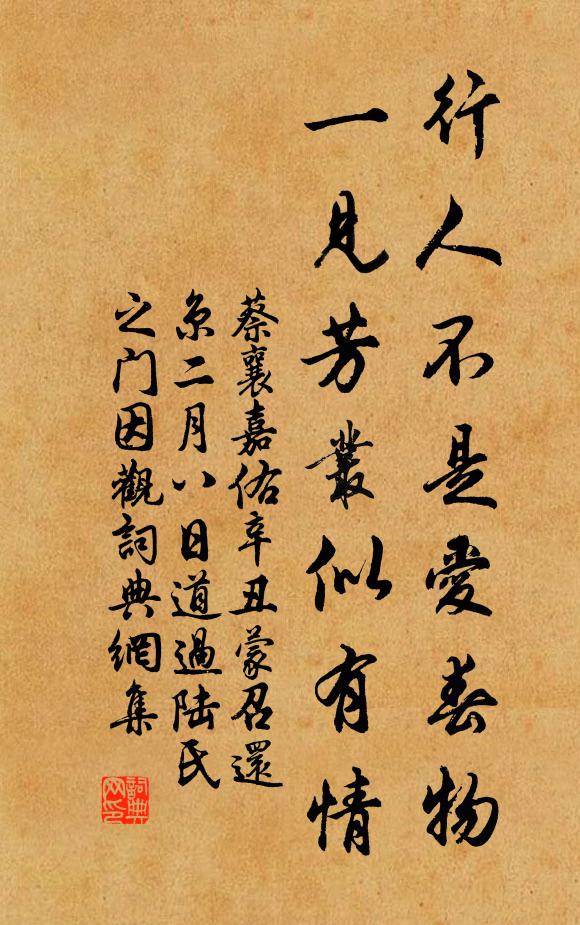 行人不是愛春物
一見芳叢似有情
蔡襄嘉佑辛丑蒙召還
京二月八日道過陸氏
之门因觀詞典網集
詞典网印